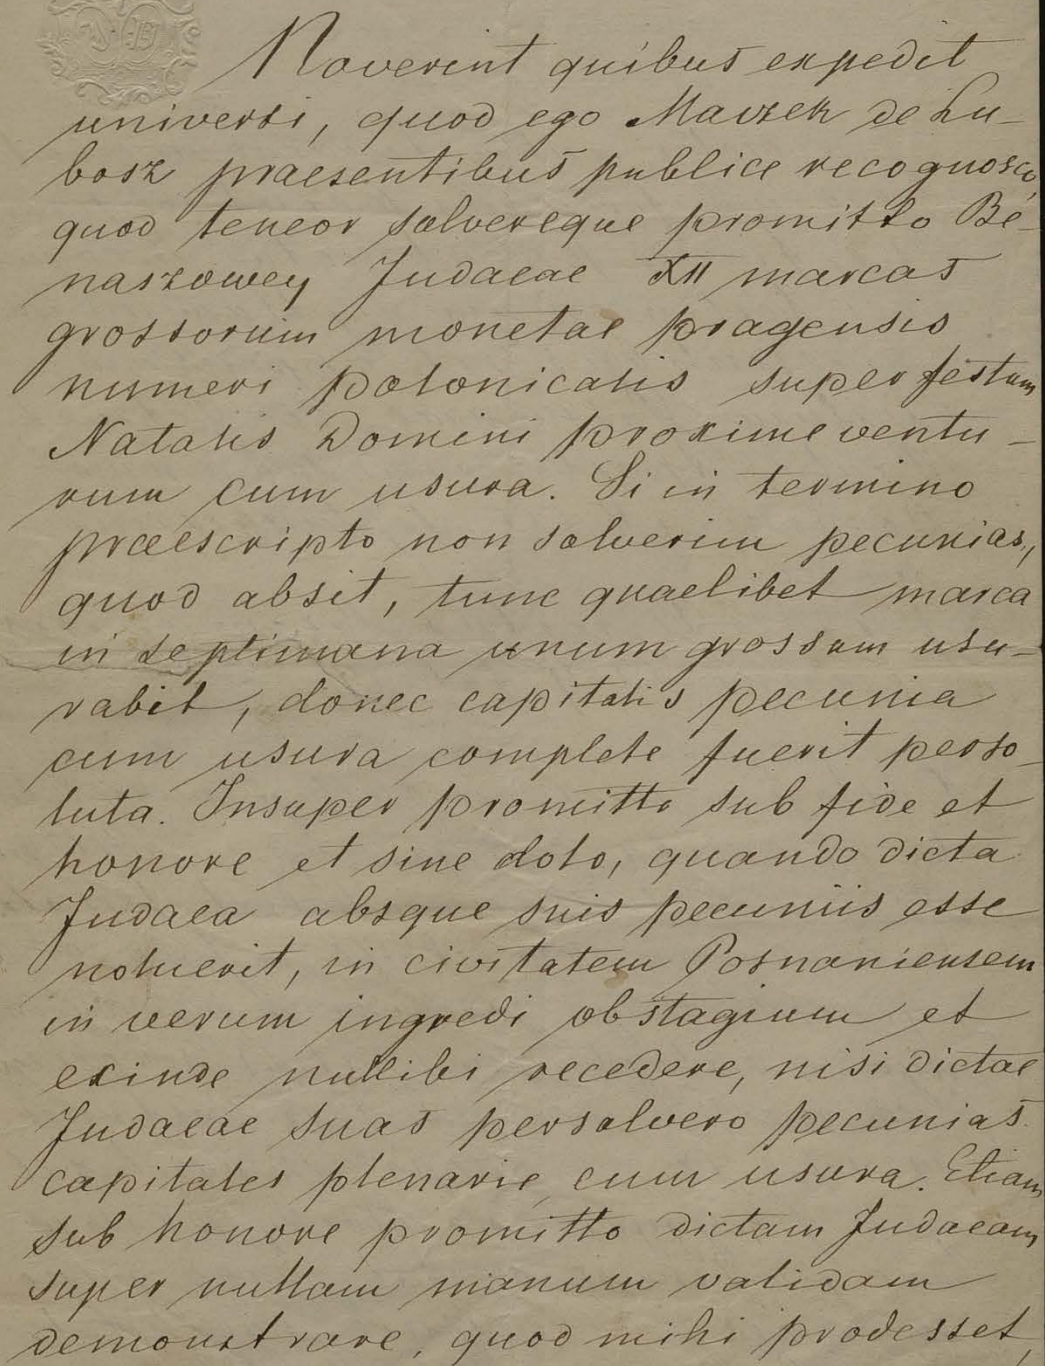 Noverint quibus expedit
universi, quod ego Maczek de Lu-
bosz praesentibus publice recognosco,
quod teneor solvereque promitto Be-
naszowey Judaeae XII marcas
grossorum monetae pragensis
numeri polonicalis super festum
Natalis Domini proxime ventu-
rum cum usura. Si in termino
praescripto non solverim pecunias,
quod absit, tunc quaelibet marca
in septimana unum grossum usu-
rabit, donec capitalis pecunia
cum usura complete fuerit perso-
luta. Insuper promitto sub fide et
honore et sine dolo, quando dicta
Judaea absque suis pecuniis esse
noluerit, in civitatem Posnaniensem
in verum ingredi obstagium et
exinde nullibi recedere, nisi dictae
Judaeae suas persolvero pecunias
capitales plenarie cum usura. Etiam
sub honore promitto dictam Judaeam
super nullam manum validam
demonstrare, quod mihi prodesset,